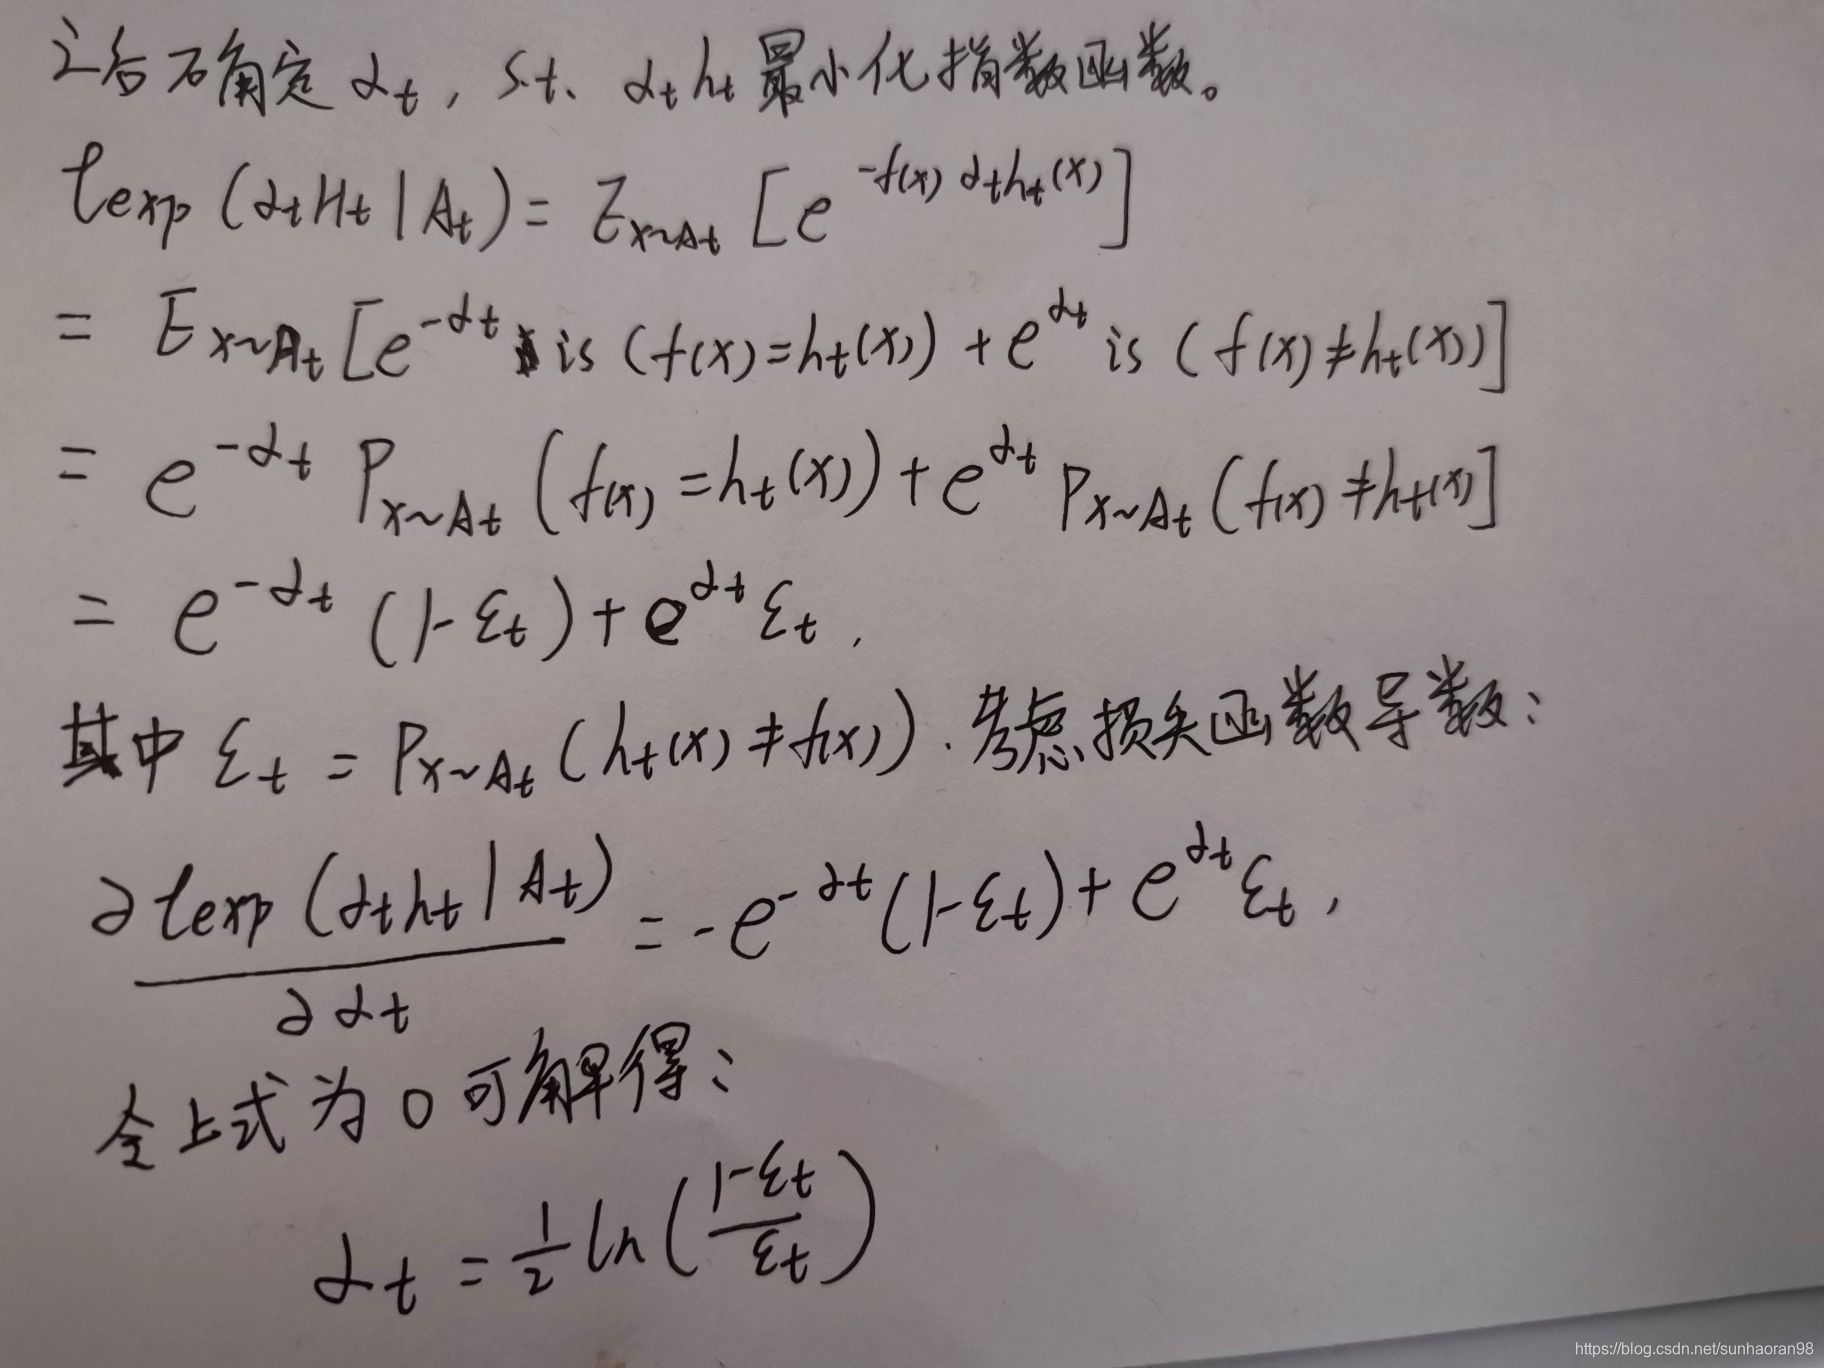 之后不确定 αt, s.t. αtht 最小化指数函数。
ℓexp (αtHt | At) = Ex~At [e^{-f(x) αtht(x)}]
= Ex~At [e^{-αt} is (f(x)=ht(x)) + e^{αt} is (f(x)≠ht(x))]
= e^{-αt} Px~At (f(x)=ht(x)) + e^{αt} Px~At (f(x)≠ht(x)]
= e^{-αt} (1-εt) + e^{αt} εt,
其中 εt = Px~At (ht(x)≠f(x)). 考虑损失函数导数:
∂ℓexp (αtht | At) / ∂αt = -e^{-αt} (1-εt) + e^{αt} εt,
令上式为0可解得:
αt = 1/2 ln((1-εt)/εt)
https://blog.csdn.net/sunhaoran98